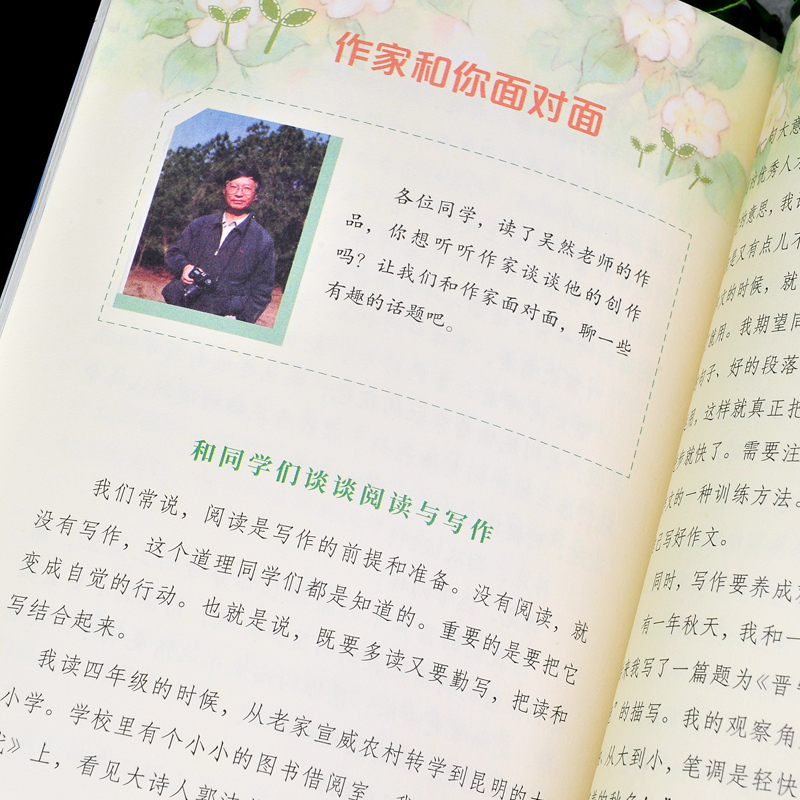 作家和你面对面
各位同学，读了吴然老师的作
品，你想听听作家谈谈他的创作
吗？让我们和作家面对面，聊一些
有趣的话题吧。
和同学们谈谈阅读与写作
我们常说，阅读是写作的前提和准备。没有阅读，就
没有写作，这个道理同学们都是知道的。重要的是要把它
变成自觉的行动。也就是说，既要多读又要勤写，把读和
写结合起来。
我读四年级的时候，从老家宣威农村转学到昆明的
小学。学校里有个小小的图书借阅室
》上，看见大诗人郭
句大意
优秀人才
的意思，我
是又有点儿不
文的时候，就
就用。我期望同
句子、好的段落
用，这样就真正把
步就快了。需要注
文的一种训练方法。
记写好作文。
同时，写作要养成
有一年秋天，我和一
来我写了一篇题为《晋
”的描写。我的观察角
从大到小，笔调是轻快